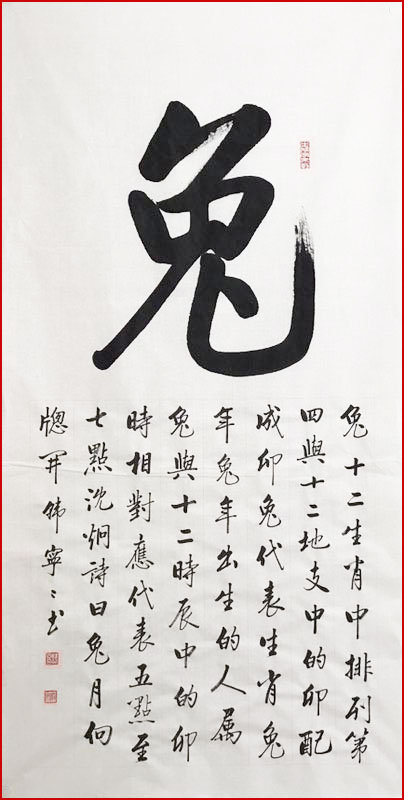 兔
兔十二生肖中排列第
四與十二地支中的卯配
成卯兔代表生肖兔
年兔年出生的人属
兔與十二時辰中的卯
時相對應代表五點至
七點沈炯詩曰兔月向
牕開韩寧〻书